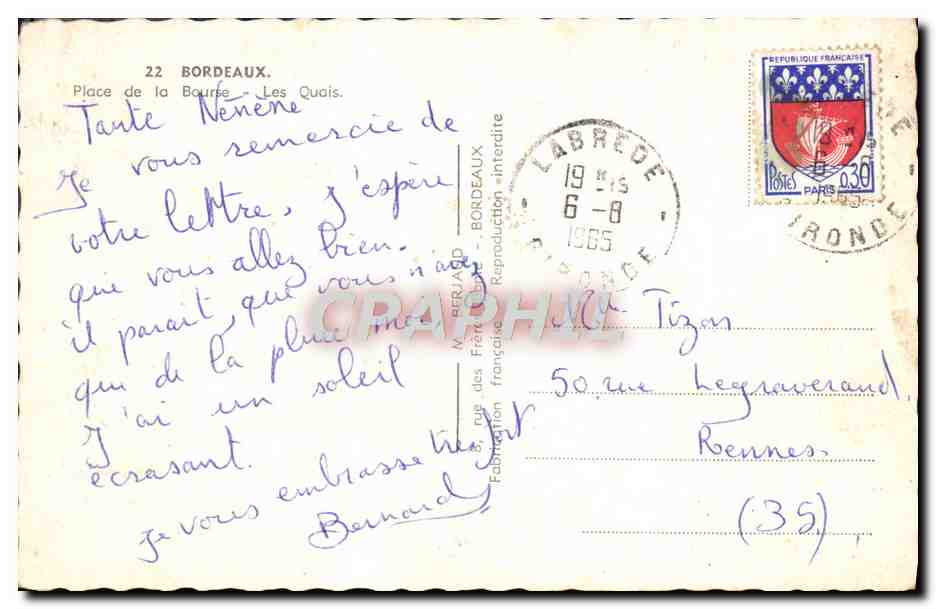 22 BORDEAUX.
Place de la Bourse - Les Quais.
Tante Nénène
Je vous remercie de
votre lettre, j'espère
que vous allez bien.
il parait, que vous n'avez
qui de la pluie moi
J'ai un soleil
écrasant.
je vous embrasse très fort
Bernard
M. BERJAUD
8, rue des Frères - BORDEAUX
Fabrication française - Reproduction interdite
LABREDE
19 H -15
6 -8
1965
GIRONDE
REPUBLIQUE FRANÇAISE
POSTES
PARIS
0,30
6
1965
GIRONDE
CPARHAMA
Mlle Tizon
50, rue Legraverand,
Rennes.
(35),